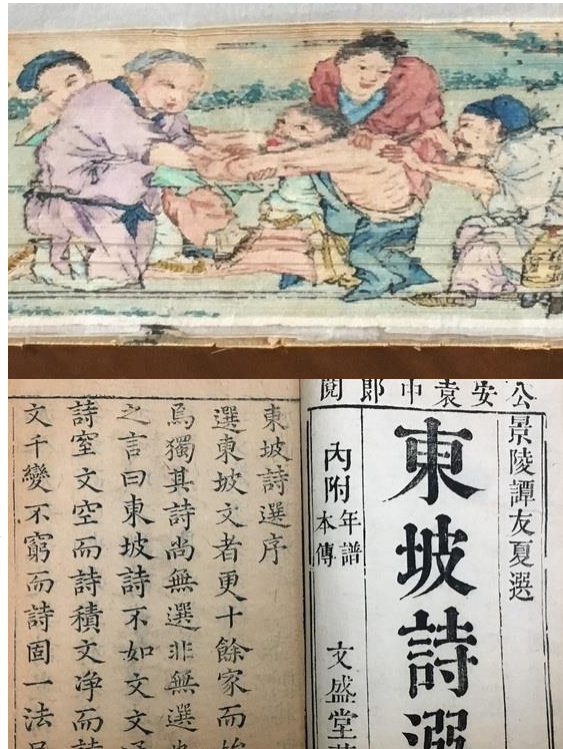 公安袁中郎閱
景陵譚友夏選
東坡詩選
內附年譜
本傳
文盛堂
東坡詩選序
選東坡文者更十餘家而
焉獨其詩尚無選非無選
之言曰東坡詩不如文文
詩窒文空而詩積文凈而詩
文千變不窮而詩固一法